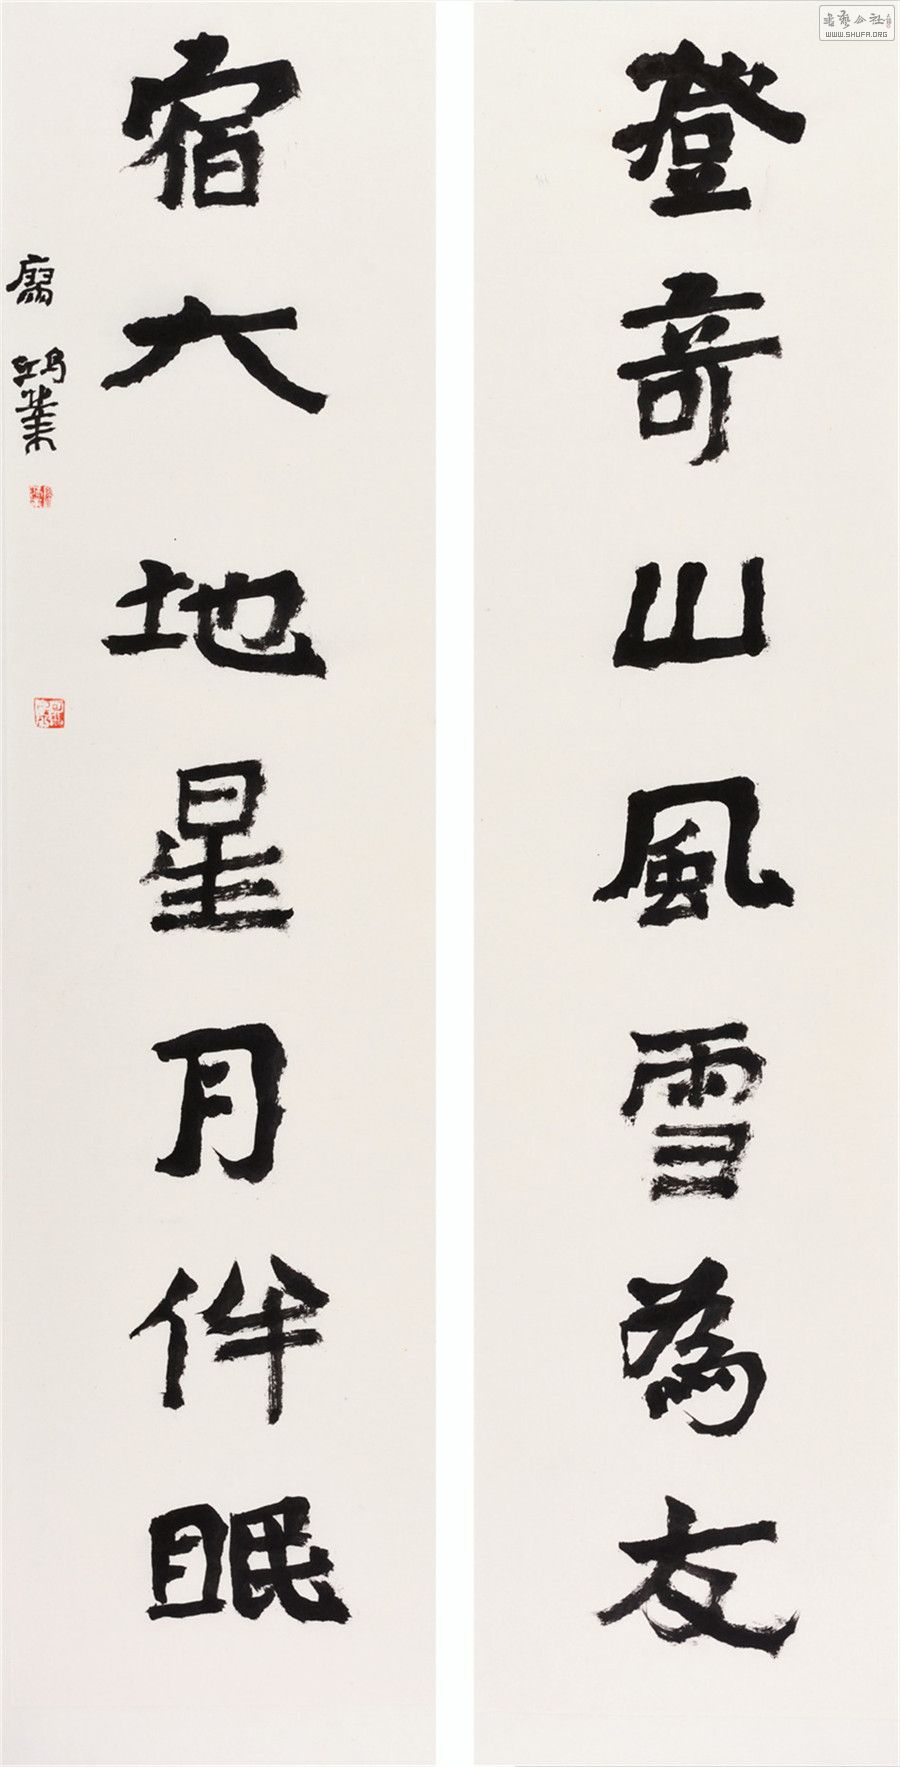 登奇山風雪為友
宿大地星月伴眠
鴻業
書藝公社
WWW.SHUFA.ORG